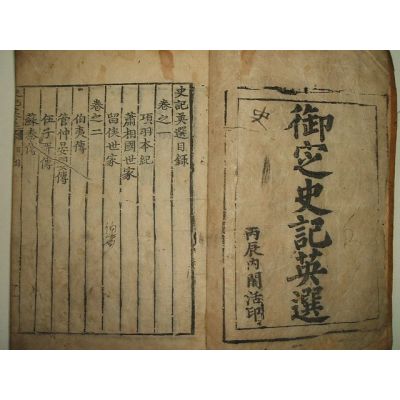 御定史記英選
丙辰內閣活印
史
史記英選目錄
卷之一
項羽本紀
蕭相國世家
留侯世家
卷之二
伯夷傳
管仲晏嬰傳
伍子胥傳
蘇秦傳